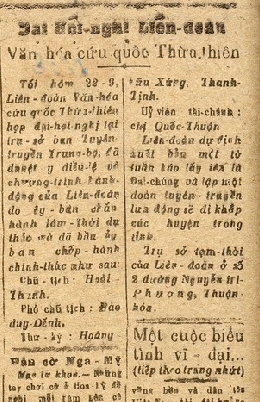 Đại Hội-nghị Liên-đoàn
Văn hóa cứu quốc Thừa-thiên
Tối hôm 28-9,
Liên-đoàn Văn-hóa
cứu quốc Thừa-thiên
họp đại-hội-nghị tại
trụ-sở ban Tuyên-
truyền Trung-bộ, đã
duyệt y điều-lệ về
chương-trình hành-
động của Liên-đoàn
do ủy-ban chấp
hành lâm-thời dự
thảo và đã bầu ủy
ban chấp-hành
chính-thức như sau:
Chủ-tịch: Hoài
Thanh.
Phó chủ tịch: Đào
duy-Dếnh.
Thư-ký: Hoàng
Dân cờ Nga-Mỹ
tay chơi cờ ở Hoa-kỳ đề
tấu Xứng, Thanh-
Tịnh.
Uỷ viên tài-chánh:
chị Quốc-Thuận
Liên-đoàn dự định
xuất bản một tờ
tuần báo lấy tên là
Đại-chúng và lập một
đoàn tuyên-truyền
lưu động sẽ đi khắp
các huyện trong
tỉnh.
Trụ sở tạm-thời
của Liên-đoàn ở số
2 đường Nguyễn tri-
Phương, Thuận
hóa.
Một cuộc biểu
tình vĩ-đại...
(tiếp theo trang nhứt)